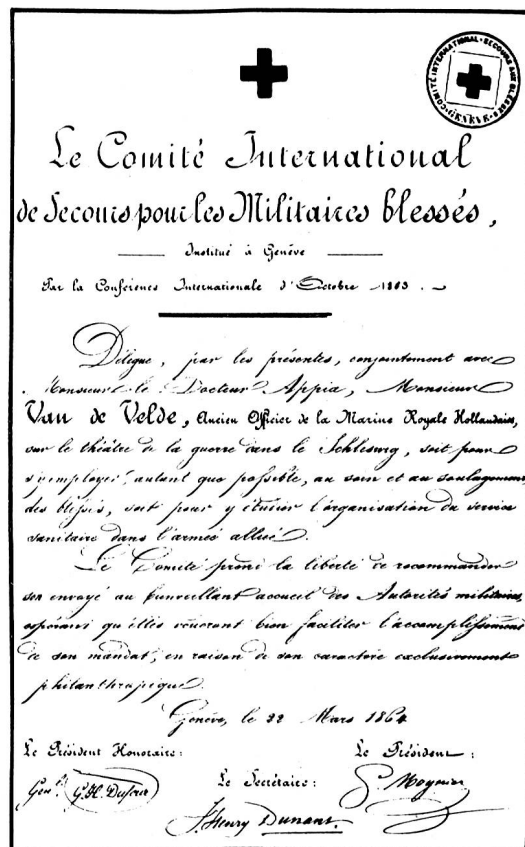 COMITÉ INTERNATIONAL · SECOURS AUX BLESSÉS · GENÈVE
Le Comité International
de Secours pour les Militaires blessés,
Institué à Genève
Par la Conférence Internationale d'Octobre 1863.
Délègue, par les présentes, conjointement avec
Monsieur le Docteur Appia, Monsieur
Van de Velde, Ancien Officier de la Marine Royale Hollandaise,
sur le théâtre de la guerre dans le Schleswig, soit pour
s'y employer, autant que possible, au soin et au soulagement
des blessés, soit pour y étudier l'organisation du service
sanitaire dans l'armée alliée.
Le Comité prend la liberté de recommander
son envoyé au bienveillant accueil des Autorités militaires,
espérant qu'elles voudront bien faciliter l'accomplissement
de son mandat, en raison de son caractère exclusivement
philanthropique.
Genève, le 22 Mars 1864
Le Président Honoraire: Le Président:
Genl. G.H. Dufour Le Secrétaire: G. Moynier
J. Henry Dunant.